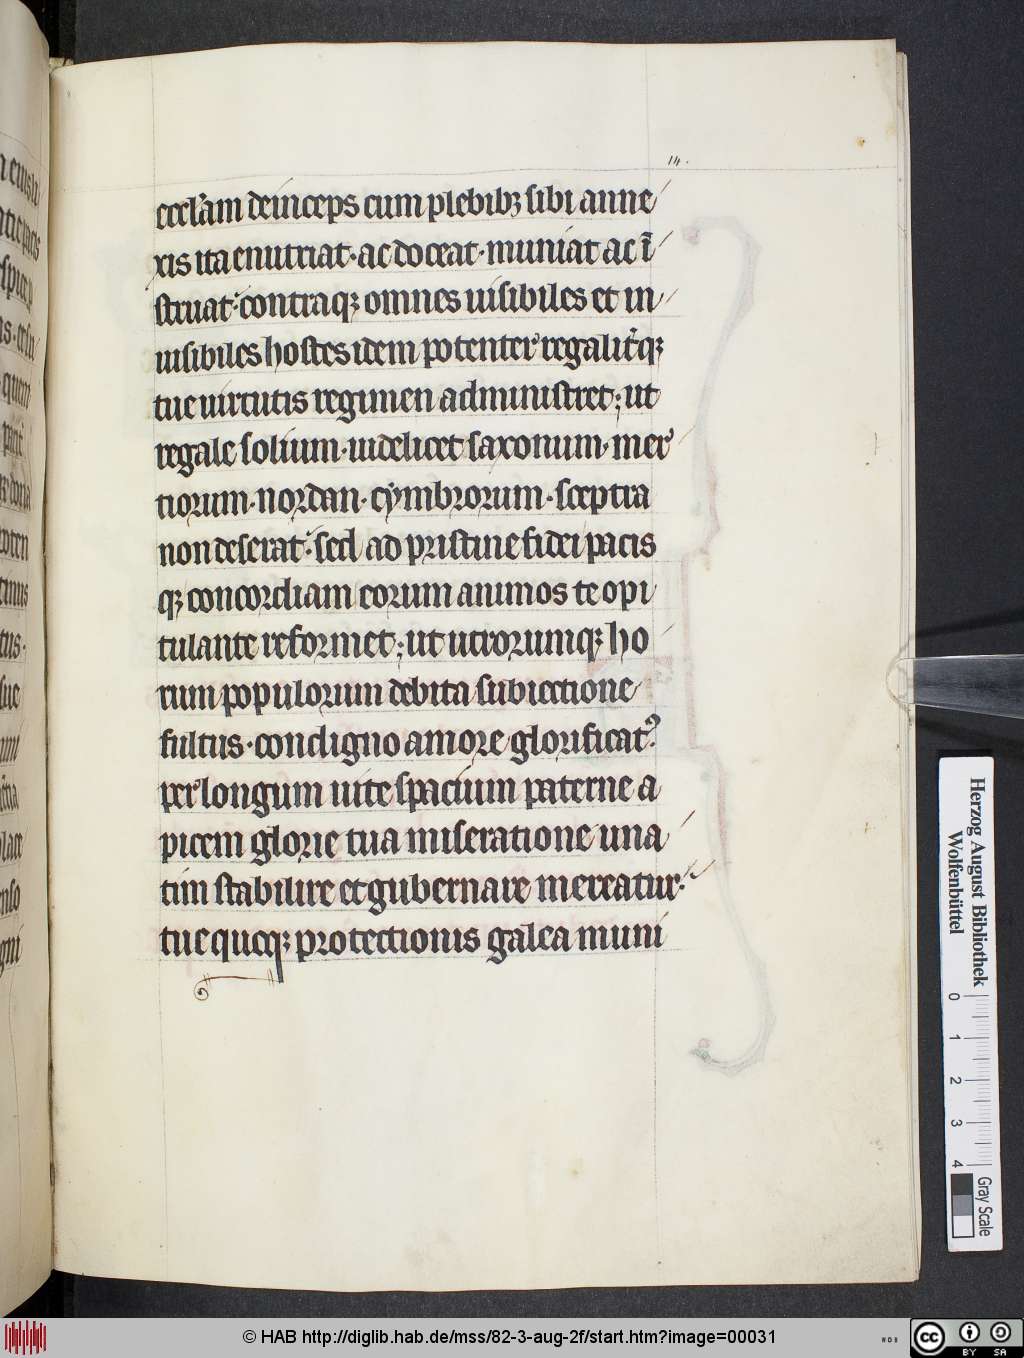 14.
eccl'am deinceps cum plebibꝫ sibi anne
xis ita enutriat · ac doceat · muniat ac ī
struat · contraqꝫ omnes uisibiles et in
uisibiles hostes idem potenter regalit'qꝫ
tue uirtutis regimen administret ; ut
regale solium · uidelicet saxonum · mer
tiorum · nordan · cymbrorum · sceptra
non deserat · sed ad pristine fidei pacis
qꝫ concordiam eorum animos te opi
tulante reformet ; ut utrorumqꝫ ho
rum populorum debita subiectione
fultus · condigno amore glorificatꝰ ·
per longum uite spacium paterne a
picem glorie tua miseratione una
tim stabilire et gubernare mereatur ·
tue quoqꝫ protectionis galea muni
Herzog August Bibliothek
Wolfenbüttel
0 1 2 3 4
Gray Scale
© HAB http://diglib.hab.de/mss/82-3-aug-2f/start.htm?image=00031
cc BY SA